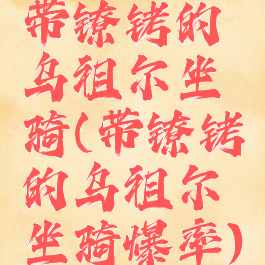 带镣铐的
乌祖尔坐
骑(带镣铐
的乌祖尔
坐骑爆率)